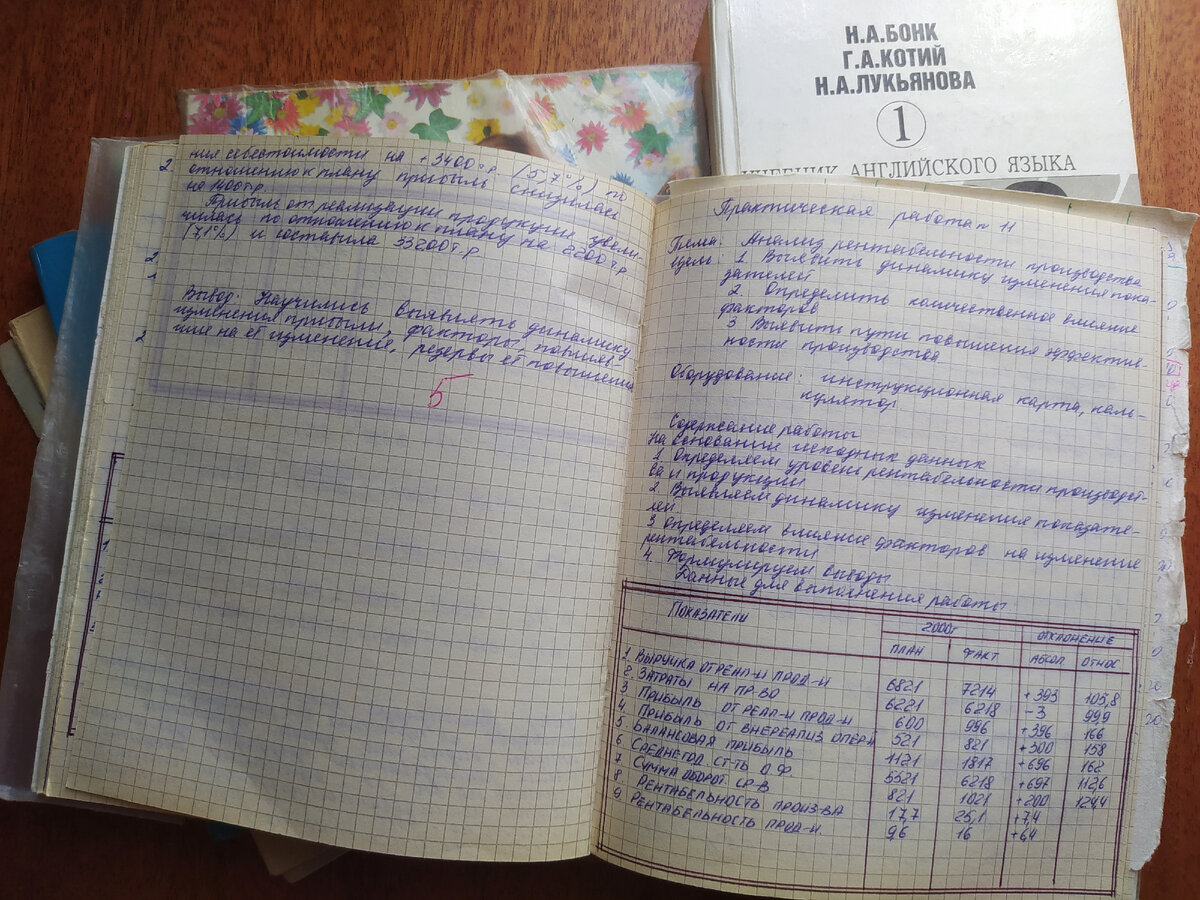 Н.А.БОНК
Г.А.КОТИЙ
Н.А.ЛУКЬЯНОВА
1
УЧЕБНИК АНГЛИЙСКОГО ЯЗЫКА
ния себестоимости на +3400 т.р (5,7%) по
отношению к плану прибыль снизилась
на 1400 т.р.
Прибыль от реализации продукции увели-
чилась по отношению к плану на 2200 т.р
(7,1%) и составила 33200 т.р
Вывод: Научились выявлять динамику
изменения прибыли, факторы, повлияв-
шие на её изменение, резервы её повышения
5
Практическая работа n 11
Тема: Анализ рентабельности производства
Цель: 1 Выявить динамику изменения пока-
зателей
2 Определить количественное влияние
факторов
3 Выявить пути повышения эффектив-
ности производства
Оборудование: инструкционная карта, каль-
кулятор
Содержание работы
На основании исходных данных
1 Определяем уровень рентабельности производст-
ва и продукции
2 Выявляем динамику изменения показате-
лей
3 определяем влияние факторов на изменение
рентабельности
4. Формулируем выводы
Данные для выполнения работы
ПОКАЗАТЕЛИ 2000г ОТКЛОНЕНИЕ
ПЛАН ФАКТ АБСОЛ ОТНОС
1. ВЫРУЧКА ОТ РЕАЛ-И ПРОД-И 6821 7214 +393 105,8
2. ЗАТРАТЫ НА ПР-ВО 6221 6218 -3 99,9
3. ПРИБЫЛЬ ОТ РЕАЛ-И ПРОД-И 600 996 +396 166
4. ПРИБЫЛЬ ОТ ВНЕРЕАЛИЗ ОПЕРИ 521 821 +300 158
5. БАЛАНСОВАЯ ПРИБЫЛЬ 1121 1817 +696 162
6 СРЕДНЕГОД. СТ-ТЬ О.Ф 5521 6218 +697 112,6
7 СУММА ОБОРОТ. СР-В 821 1021 +200 124,4
8 РЕНТАБЕЛЬНОСТЬ ПРОИЗ-ВА 17,7 25,1 +7,4
9 РЕНТАБЕЛЬНОСТЬ ПРОД-И 9,6 16 +6,4